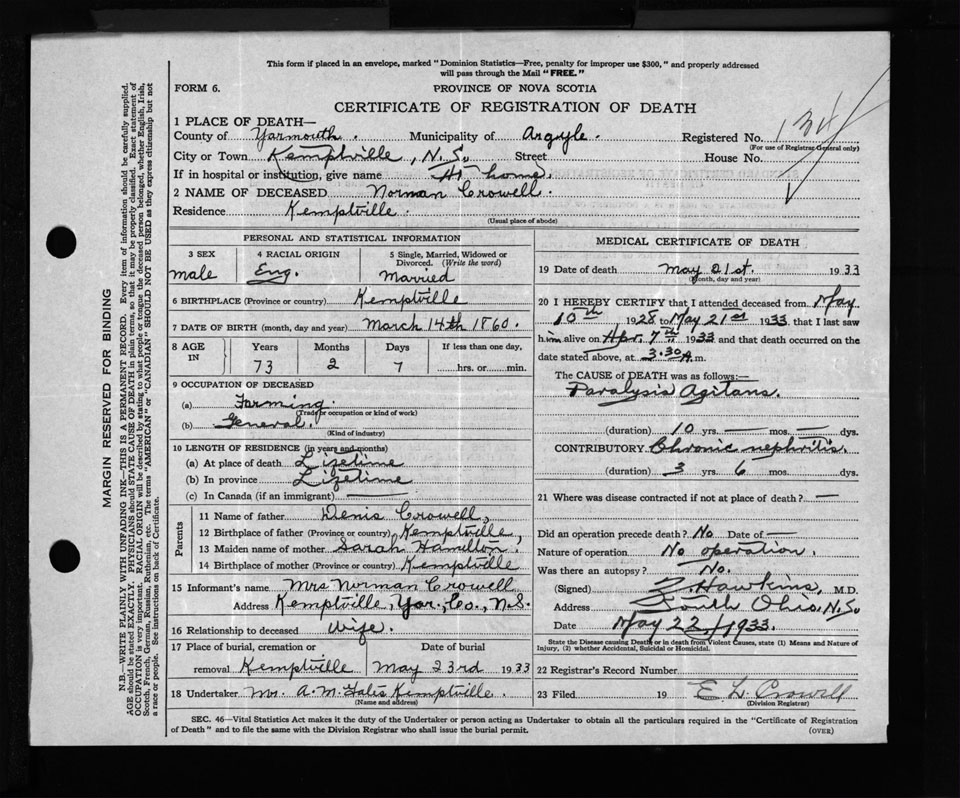 This form if placed in an envelope, marked "Dominion Statistics—Free, penalty for improper use $300," and properly addressed
will pass through the Mail "FREE."
FORM 6.
PROVINCE OF NOVA SCOTIA
CERTIFICATE OF REGISTRATION OF DEATH
1 PLACE OF DEATH—
County of Yarmouth. Municipality of Argyle. Registered No. 134
(For use of Registrar General only)
City or Town Kemptville, N.S. Street House No.
If in hospital or institution, give name At home.
2 NAME OF DECEASED Norman Crowell.
Residence Kemptville.
(Usual place of abode)
PERSONAL AND STATISTICAL INFORMATION
3 SEX
male
4 RACIAL ORIGIN
Eng.
5 Single, Married, Widowed or
Divorced. (Write the word)
Married
6 BIRTHPLACE (Province or country) Kemptville
7 DATE OF BIRTH (month, day and year) March 14th 1860.
8 AGE IN
Years Months Days If less than one day,
73 2 7 hrs. or min.
9 OCCUPATION OF DECEASED
(a) Farming.
(Trade or occupation or kind of work)
(b) General.
(Kind of industry)
10 LENGTH OF RESIDENCE (in years and months)
(a) At place of death Lifetime
(b) In province Lifetime
(c) In Canada (if an immigrant) —
Parents
11 Name of father Denis Crowell,
12 Birthplace of father (Province or country) Kemptville,
13 Maiden name of mother Sarah Hamilton.
14 Birthplace of mother (Province or country) Kemptville
15 Informant's name Mrs Norman Crowell
Address Kemptville, Yar., Co., N.S.
16 Relationship to deceased wife.
17 Place of burial, cremation or Date of burial
removal Kemptville May 23rd 1933
18 Undertaker Mr. A. M. Hales Kemptville.
(Name and address)
MEDICAL CERTIFICATE OF DEATH
19 Date of death May 21st. 1933
(Month, day and year)
20 I HEREBY CERTIFY that I attended deceased from May
10th 1928 to May 21st 1933, that I last saw
him alive on Apr. 7th 1933 and that death occurred on the
date stated above, at 3.30 A.m.
The CAUSE OF DEATH was as follows:—
Paralysis Agitans.
(duration) 10 yrs. — mos. — dys.
CONTRIBUTORY Chronic nephritis.
(duration) 3 yrs. 6 mos. dys.
21 Where was disease contracted if not at place of death? —
Did an operation precede death? No Date of —
Nature of operation. No operation.
Was there an autopsy? No.
(Signed) Hawkins, M.D.
Address South Ohio, N.S.
Date May 22/1933.
State the Disease causing Death or in death from Violent Causes, state (1) Means and Nature of
Injury, (2) whether Accidental, Suicidal or Homicidal.
22 Registrar's Record Number
23 Filed 19 E L Crowell
(Division Registrar)
SEC. 46—Vital Statistics Act makes it the duty of the Undertaker or person acting as Undertaker to obtain all the particulars required in the "Certificate of Registration
of Death" and to file the same with the Division Registrar who shall issue the burial permit.
(OVER)
MARGIN RESERVED FOR BINDING
N.B.—WRITE PLAINLY WITH UNFADING INK—THIS IS A PERMANENT RECORD. Every item of information should be carefully supplied.
AGE should be stated EXACTLY. PHYSICIANS should STATE CAUSE OF DEATH in plain terms, so that it may be properly classified. Exact statement of
OCCUPATION is very important. RACIAL ORIGIN will be described by stating to what people or tongue the deceased person belonged, whether English, Irish,
Scotch, French, German, Russian, Ruthenian, etc. The terms "AMERICAN" or "CANADIAN" SHOULD NOT BE USED as they express citizenship but not
a race or people. See instructions on back of Certificate.